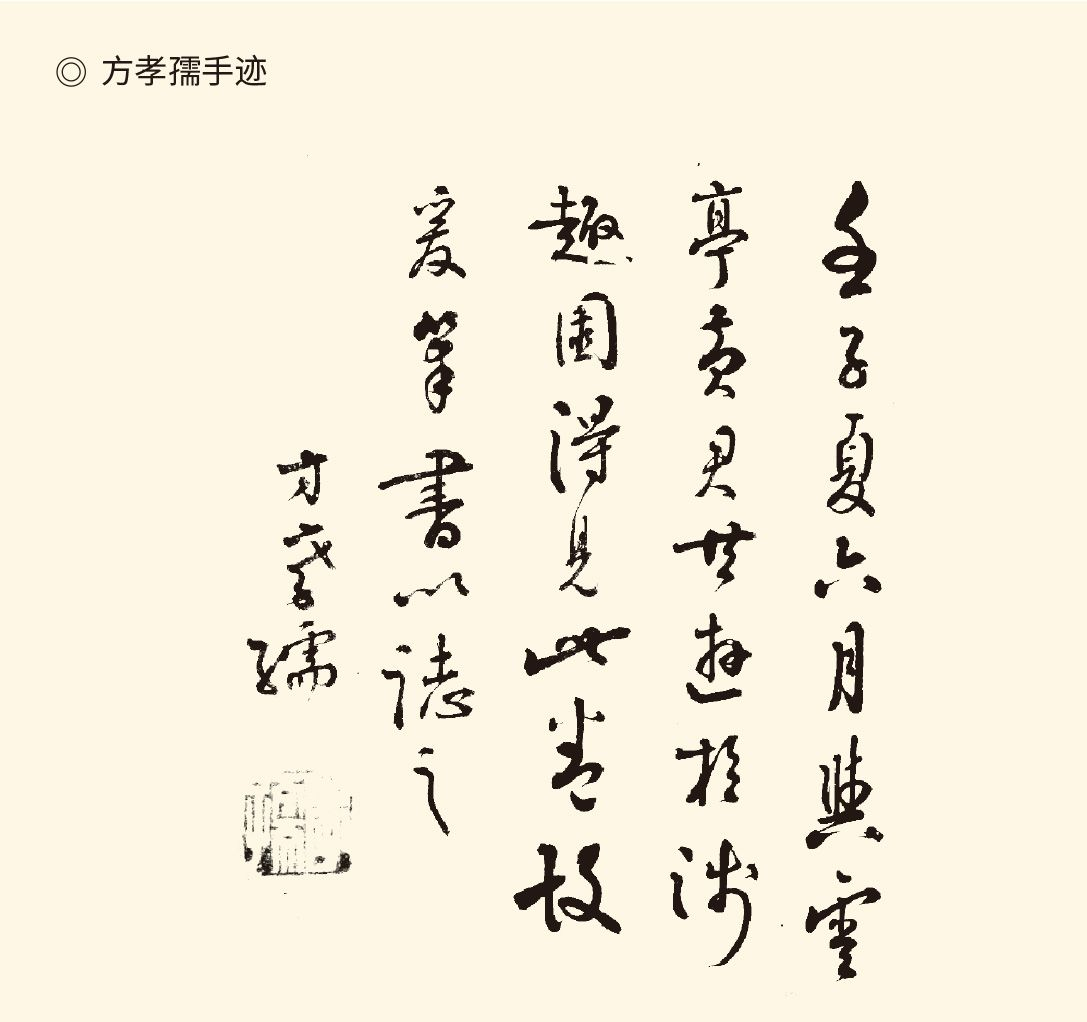 ◎ 方孝孺手迹
壬子夏六月與雲
亭黄君共遊於涉
趣園得見此卷故
爰筆書以誌之
方孝孺